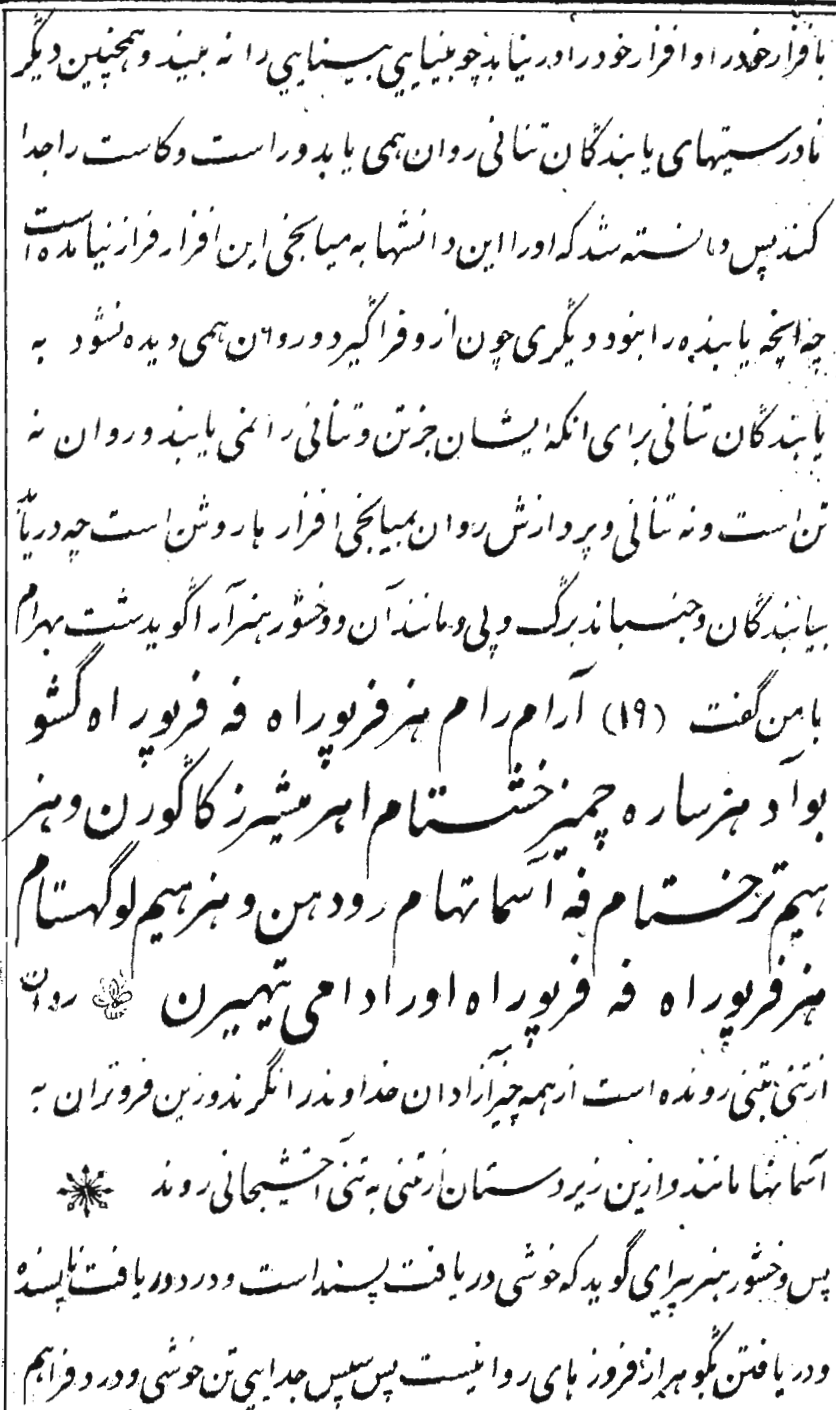 با فزار خود را و افزار خود را در نیابد چو بینایی بینایی را نه بیند و همچنین دیگر
نادرستیهای یابندگان تنانی روان همی یابد و راست و کاست را جدا
کند پس دانسته شد که او را این دانشها به میانجی این افزار فراز نیامده است
چه انچه یابنده را بنود دیگری چون از و فرا گیرد و روان همی دیده نشود به
یابندگان تنانی برای انکه ایشان جز تن و تنانی را نمی یابند و روان نه
تن است و نه تنانی و پردازش روان بمیانجی افزار ها روشن است چه دریابد
بیابندگان و جنباند برگ و پی و مانند آن و وخشور هنر آرا گوید شت بهرام
بامن گفت (۱۹) آرام رام هنر فرپوراه فه فرپوراه گشو
بوآد هنر ساره چمیز خشتام اهر میشرز کاگورن و هنر
هیم ترخستام فه آسمانهام رودهن و هنر هیم لوگهستام
هنر فرپوراه فه فرپوراه اورادامی تهمیرن روان
از تنی بتنی رونده است از همه چیز آزادان خداوند را نگرند و زین فروتران به
آسمانها مانند و ازین زیردستان از تنی به تنی آخشیجانی روند
پس وخشور هنر پیرای گوید که خوشی دریافت پسند است و درد دریافت ناپسنده
و دریافتن بگوهر از فروزهای روانیست پس سپس جدایی تن خوشی و درد فراهم